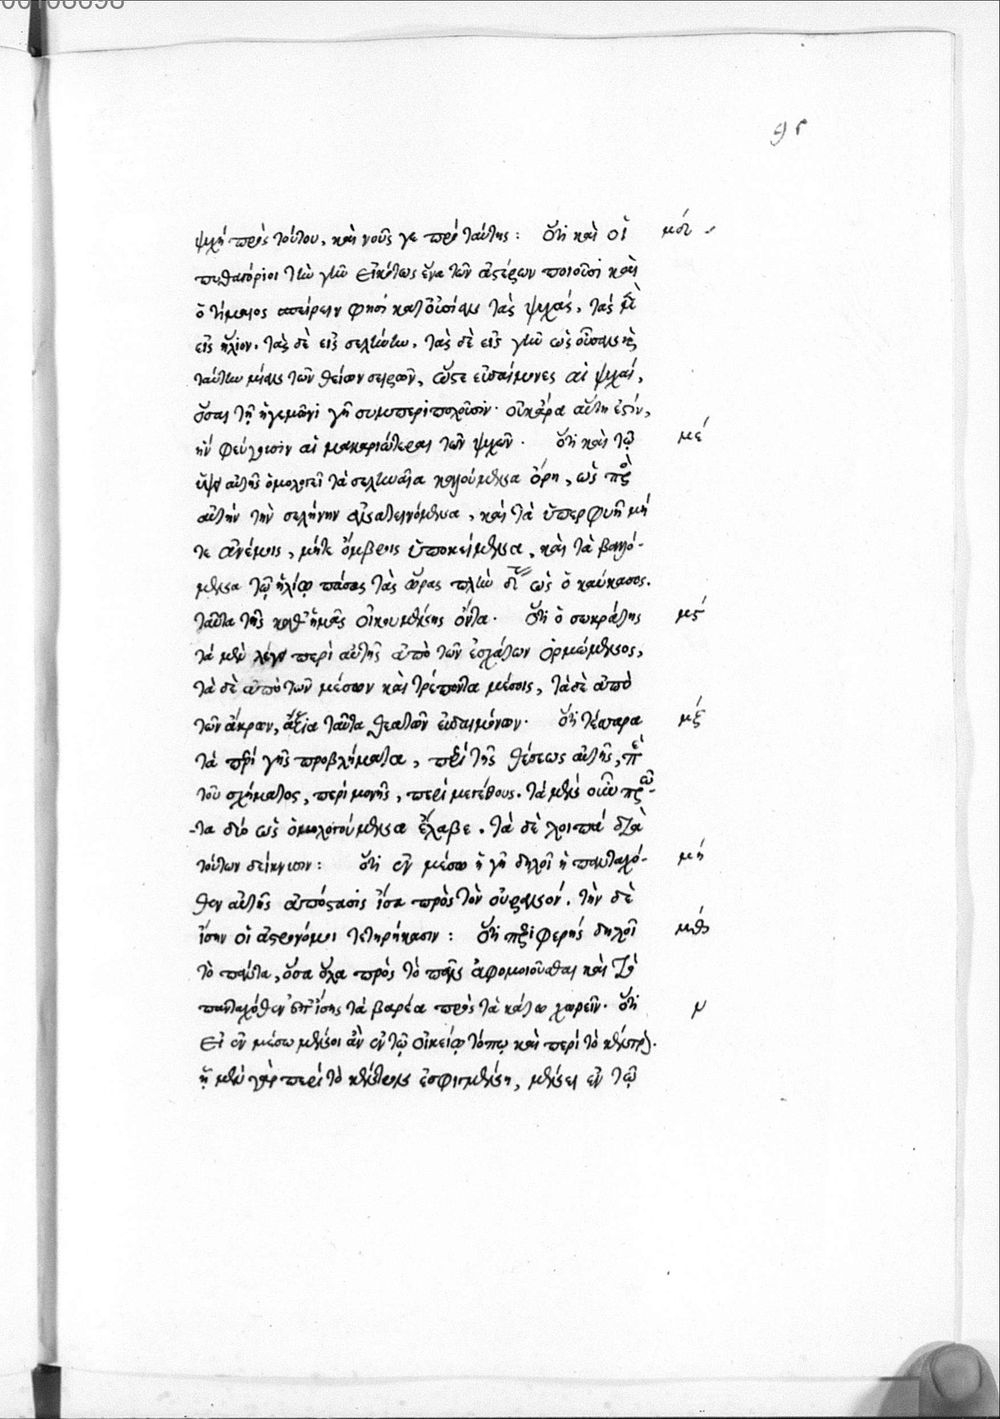 ψυχὴ πρὸς τούτου, καὶ νοῦς γε πρὸ ταύτης: ὅτι καὶ οἱ μδʹ
πυθαγόριοι τὴν γῆν εἰκότως ἕνα τῶν ἀστέρων ποιοῦσι καὶ
ὁ τίμαιος σπείρειν φησὶ κατ' οὐσίαν τὰς ψυχάς, τὰς μὲν
εἰς ἥλιον, τὰς δὲ εἰς σελήνην, τὰς δὲ εἰς γῆν ὡς οὖσαν καὶ
ταύτην μίαν τῶν θείων σειρῶν, ὥστε εὐδαίμονες αἱ ψυχαί,
ὅσαι τῇ ἡγεμόνι γῇ συμπεριπολοῦσιν· οὐκ ἄρα αὕτη ἐστίν,
ἣν φεύγουσιν αἱ μακαριώτεραι τῶν ψυχῶν· ὅτι καὶ τῷ μεʹ
ὕψει αὐτῆς ὁμολογεῖ τὰ σεληναῖα καλούμενα ὄρη, ὡς πρὸς
αὐτὴν τὴν σελήνην ἀνατεινόμενα, καὶ τὰ ὑπερφυῆ μή
τε ἀνέμοις, μήτε ὄμβροις ὑποκείμενα, καὶ τὰ βαλλό-
μενα τῷ ἡλίῳ πάσας τὰς ὥρας πλὴν ὡς ὁ καύκασος.
ταῦτα τῆς καθ' ἡμᾶς οἰκουμένης ὄντα· ὅτι ὁ σωκράτης μςʹ
τὰ μὲν λέγει περὶ αὐτῆς ἀπὸ τῶν ἐσχάτων ὁρμώμενος,
τὰ δὲ ἀπὸ τῶν μέσων καὶ πρέποντα μέσοις, τὰ δὲ ἀπὸ
τῶν ἄκρων, ἄξια ταῦτα θεατῶν εὐδαιμόνων· ὅτι τέσσαρα μζʹ
τὰ περὶ γῆς προβλήματα, περὶ τῆς θέσεως αὐτῆς, περὶ
τοῦ σχήματος, περὶ μονῆς, περὶ μεγέθους. τὰ μὲν οὖν πρῶ-
-τα δύο ὡς ὁμολογούμενα ἔλαβε. τὰ δὲ λοιπὰ διὰ
τούτων δείκνυσιν: ὅτι ἐν μέσῳ ἡ γῆ δηλοῖ ἡ πανταχό- μηʹ
θεν αὐτῆς ἀπόστασις ἴσα πρὸς τὸν οὐρανόν. τὴν δὲ
ἴσην οἱ ἀστρονόμοι τετηρήκασιν: ὅτι περιφερὴς δηλοῖ μθʹ
τὸ πάντα, ὅσα ὅλα πρὸς τὸ πᾶν ἀφομοιοῦσθαι καὶ τὸ
πανταχόθεν ἐπ' ἴσης τὰ βαρέα πρὸς τὰ κάτω χωρεῖν· ὅτι ν
εἰ ἐν μέσῳ μένοι ἂν ἐν τῷ οἰκείῳ τόπῳ καὶ περὶ τὸ κέντρον.
ἡ μὲν γὰρ περὶ τὸ κέντρον ἐσφιγμένη, μένει ἐν τῷ